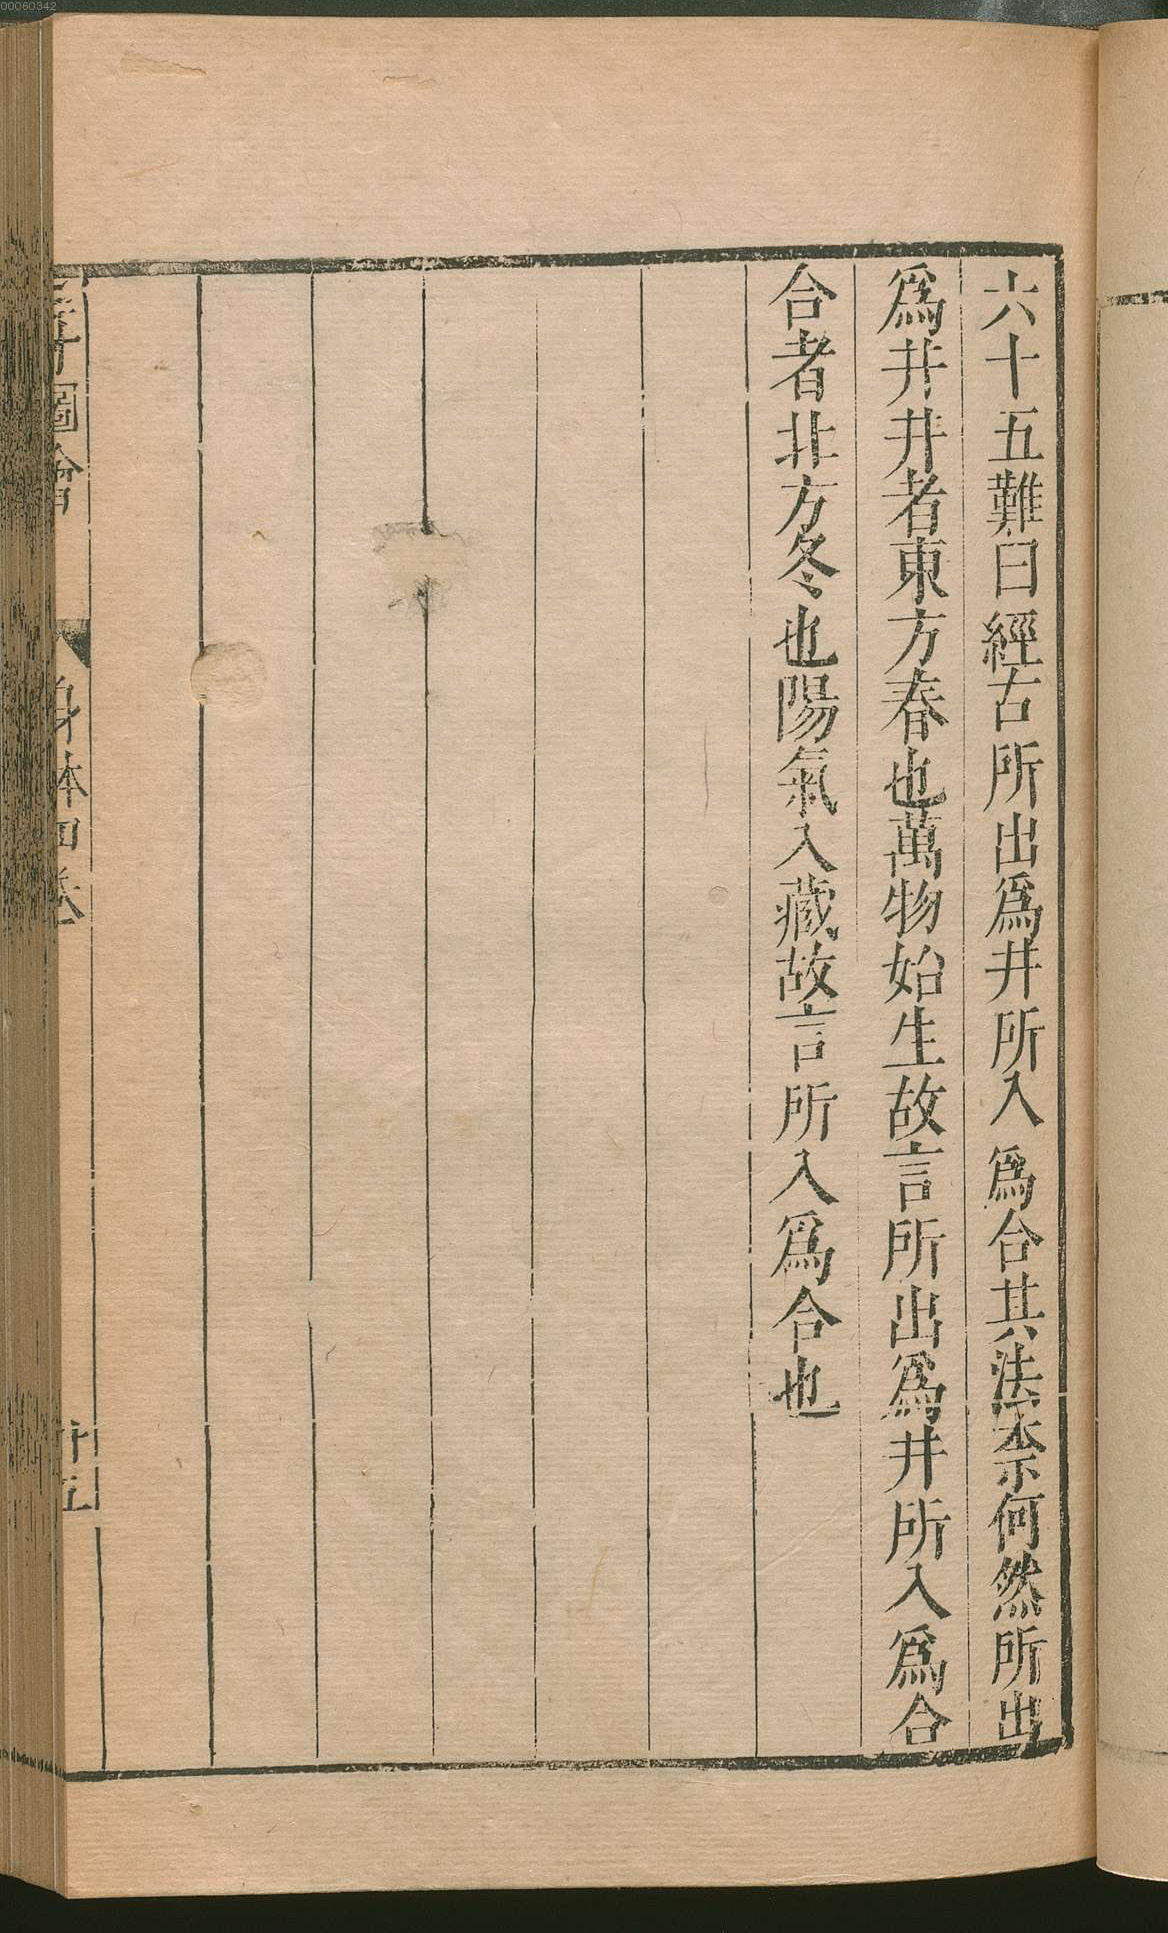 六十五難曰經古所出爲井所入爲合其法柰何然所出
爲井井者東方春也萬物始生故言所出爲井所入爲合
合者北方冬也陽氣入藏故言所入爲合也
圖會
身体四卷
廿五
00060342